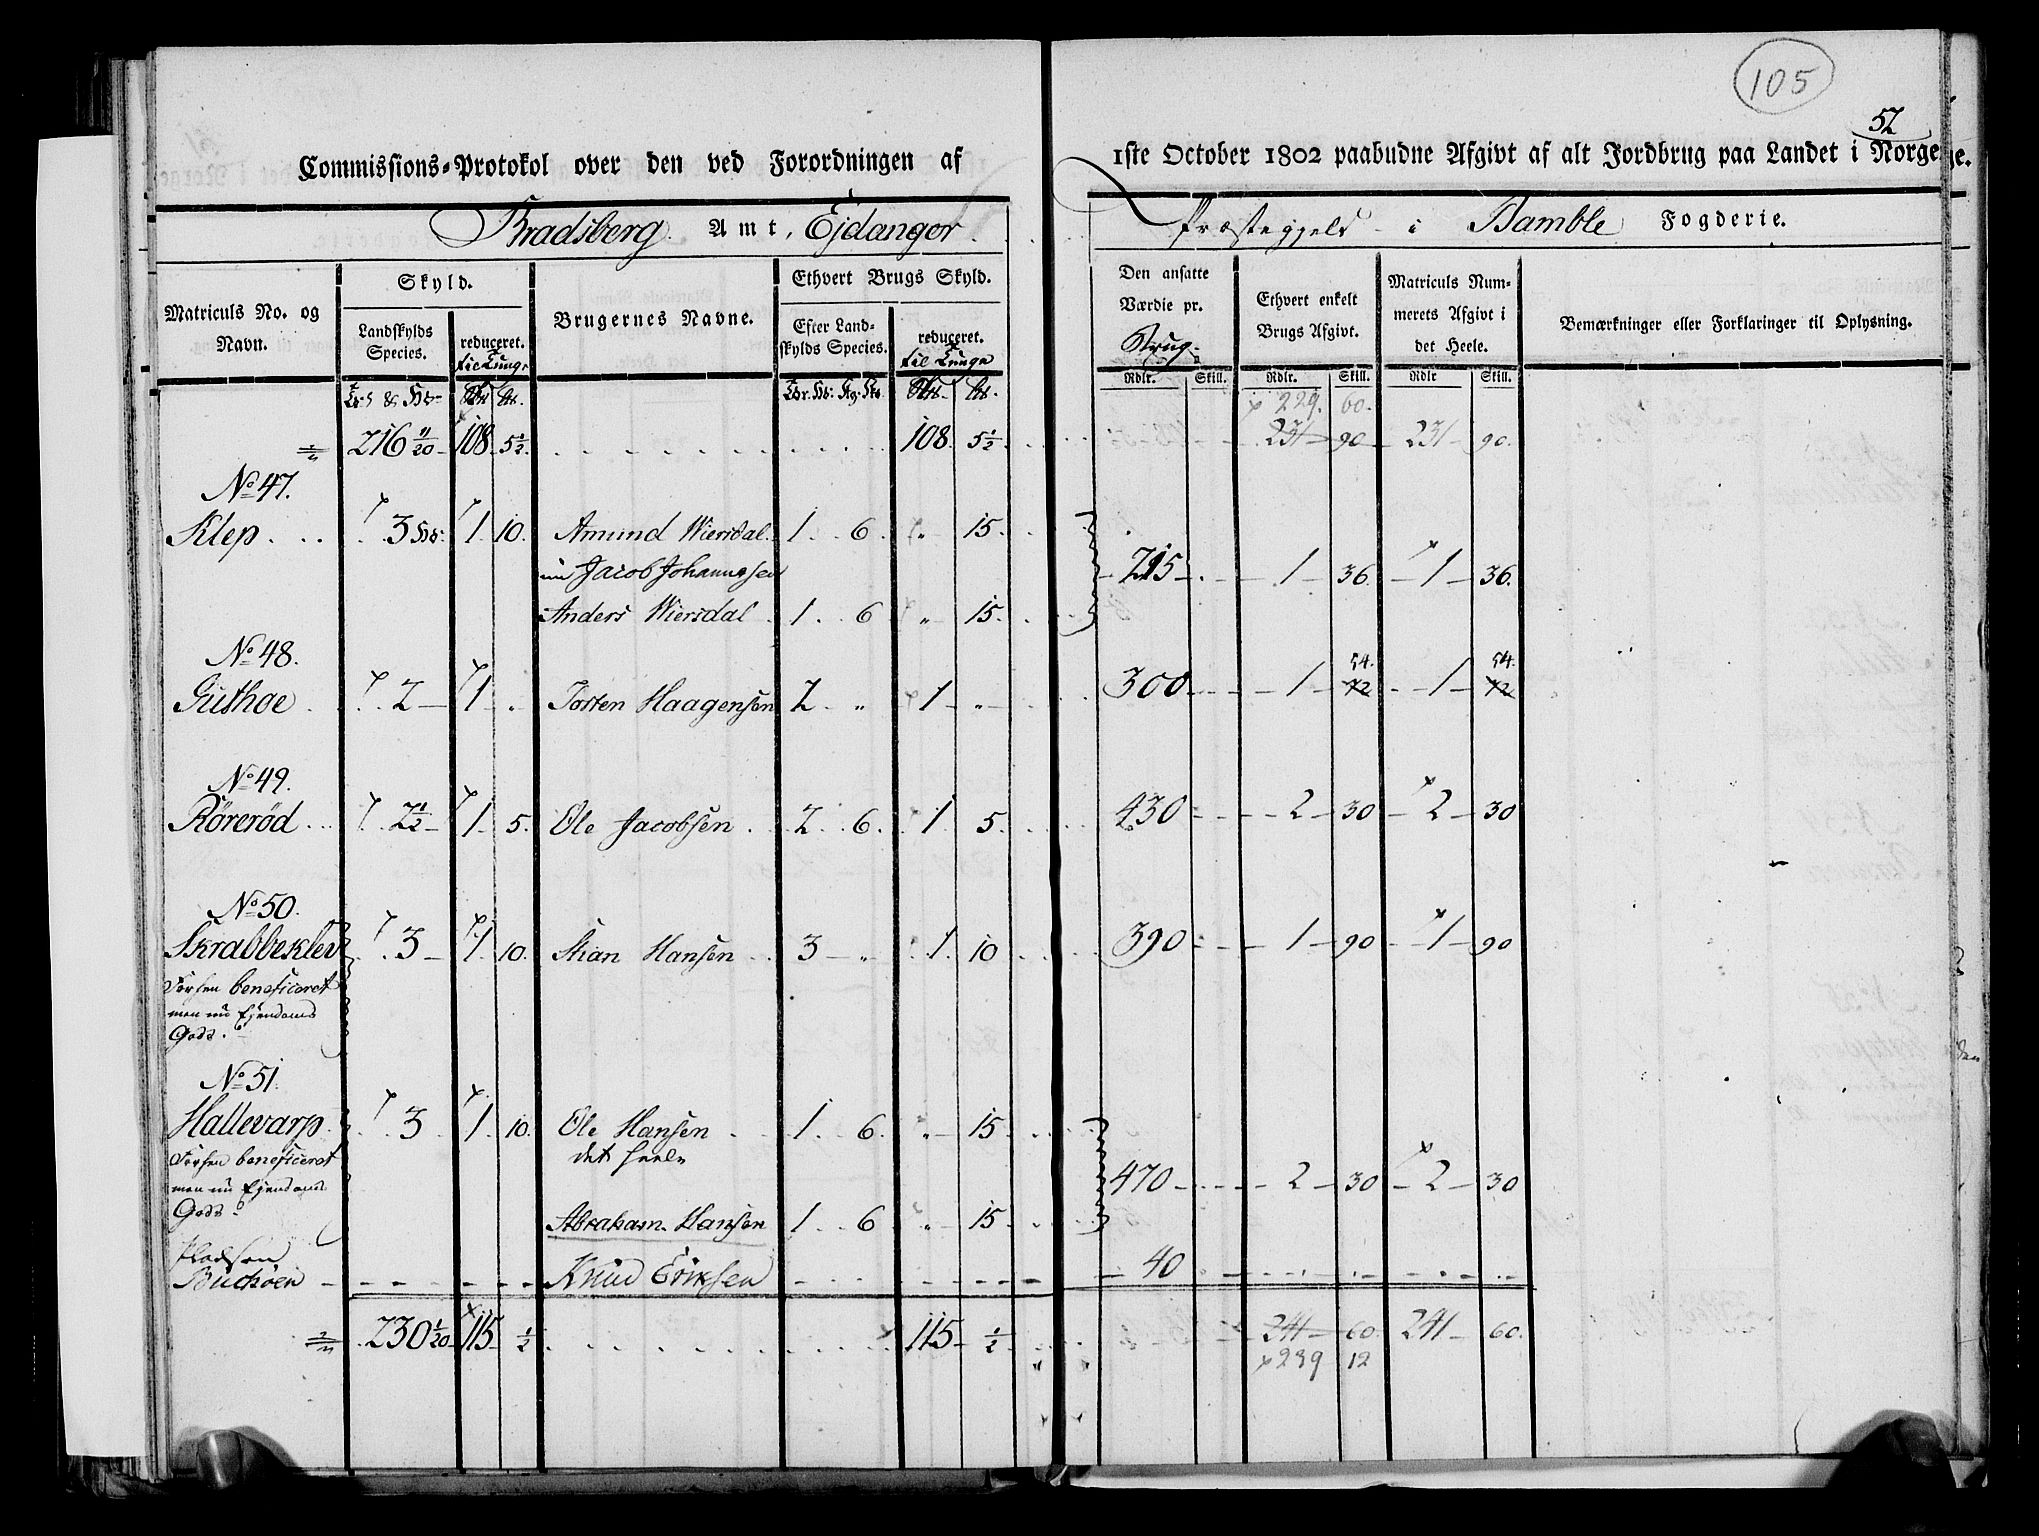 105
52
Commissions-Protokol over den ved Forordningen af 1ste October 1802 paabudne Afgivt af alt Jordbrug paa Landet i Norge.
Bradsberg Amt, Ejdanger Præstegjeld i Bamble Fogderie.
Matriculs No. og Navn.
Skyld.
Landskylds Species.
reduceret. til Tunge
Brugernes Navne.
Ethvert Brugs Skyld.
Efter Landskylds Species.
reduceret. til Tunge
Den ansatte Værdie pr. Brug.
Ethvert enkelt Brugs Afgivt.
Matriculs Nummerets Afgivt i det Heele.
Bemærkninger eller Forklaringer til Oplysning.
Rdlr. Skill. Rdlr. Skill. Rdlr Skill.
x 229. 60.
216 11/20 108 5 1/2 108. 5 1/2 231 90 231 90.
No 47.
Klep 3 Hr: 1 10. Amund Wiersdal 1 6 " 15.
nu Jacob Johannesen 215 1 36. 1 36.
Anders Wiersdal 1 6 " 15.
No 48. 54. 54.
Gusthoe 2 1 " Torten Haagensen 2 " 1 " 300 1 72 1 72
No 49.
Rörerød 2 1/2 1 5. Ole Jacobsen 2 6. 1 5. 430 2 30 2 30
No 50.
Skrabbeklev 3 1 10. Stian Hansen 3 " 1 10 390 1 90 1 90
Forhen beneficeret
men nu Ejendoms
Gods.
No 51.
Hallevarp 3 1 10. Ole Hansen 1 6. " 15
Forhen beneficeret det heele
men nu Ejendoms 470 2 30 2 30
Gods.
Abraham Hansen 1 6 " 15
Pladsen
Buchøen Knud Eriksen 40
230 1/20 115 1/2 115 1/2 241 60. 241 60.
x 239 12